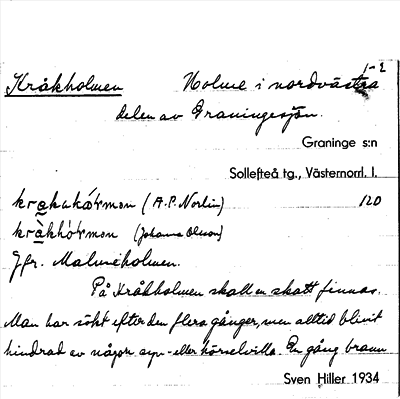 1-2
Kråkholmen Holme i nordvästra
delen av Graningesjön.
Graninge s:n
Sollefteå tg., Västernorrl. l.
(A.P. Norlin) 120
(Johanna Olsson)
Jfr. Malmeholmen.
På Kråkholmen skall en skatt finnas.
Man har sökt efter den flera gånger, men alltid blivit
hindrad av någon syn- eller hörselvilla. En gång brann
Sven Hiller 1934